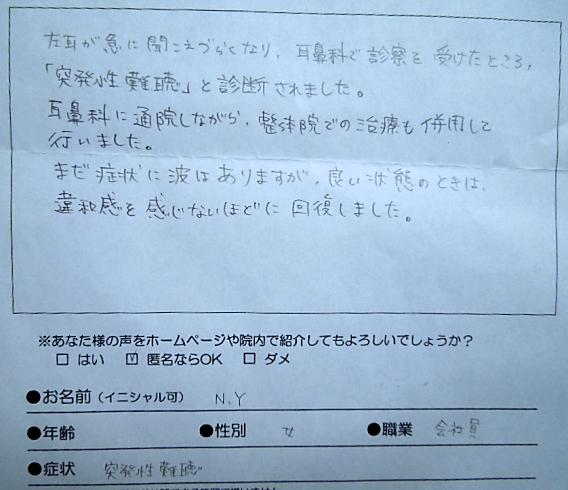 左耳が急に聞こえづらくなり、耳鼻科で診察を受けたところ、
「突発性難聴」と診断されました。
耳鼻科に通院しながら、整体院での治療も併用して
行いました。
まだ症状に波はありますが、良い状態のときは、
違和感を感じないほどに回復しました。
※あなた様の声をホームページや院内で紹介してもよろしいでしょうか?
□ はい ☑ 匿名ならOK □ ダメ
●お名前(イニシャル可) N.Y
●年齢 ●性別 女 ●職業 会社員
●症状 突発性難聴